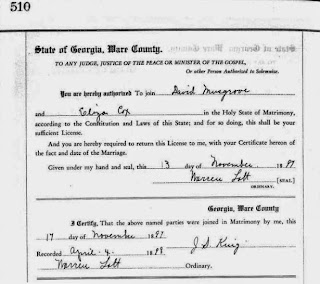 510
State of Georgia, Ware County.
TO ANY JUDGE, JUSTICE OF THE PEACE OR MINISTER OF THE GOSPEL,
Or other Person Authorized to Solemnize.
You are hereby authorized To join David Musgrove
and Eliza Cox in the Holy State of Matrimony,
according to the Constitution and Laws of this State; and for so doing, this shall be your
sufficient License.
And you are hereby required to return this License to me, with your Certificate hereon of
the fact and date of the Marriage.
Given under my hand and seal, this 13 day of November 1897
Warren Lott [SEAL]
ORDINARY.
Georgia, Ware County
I Certify, That the above named parties were joined in Matrimony by me, this
17 day of November 1897 J. S. King
Recorded April 4. 1898
Warren Lott Ordinary.